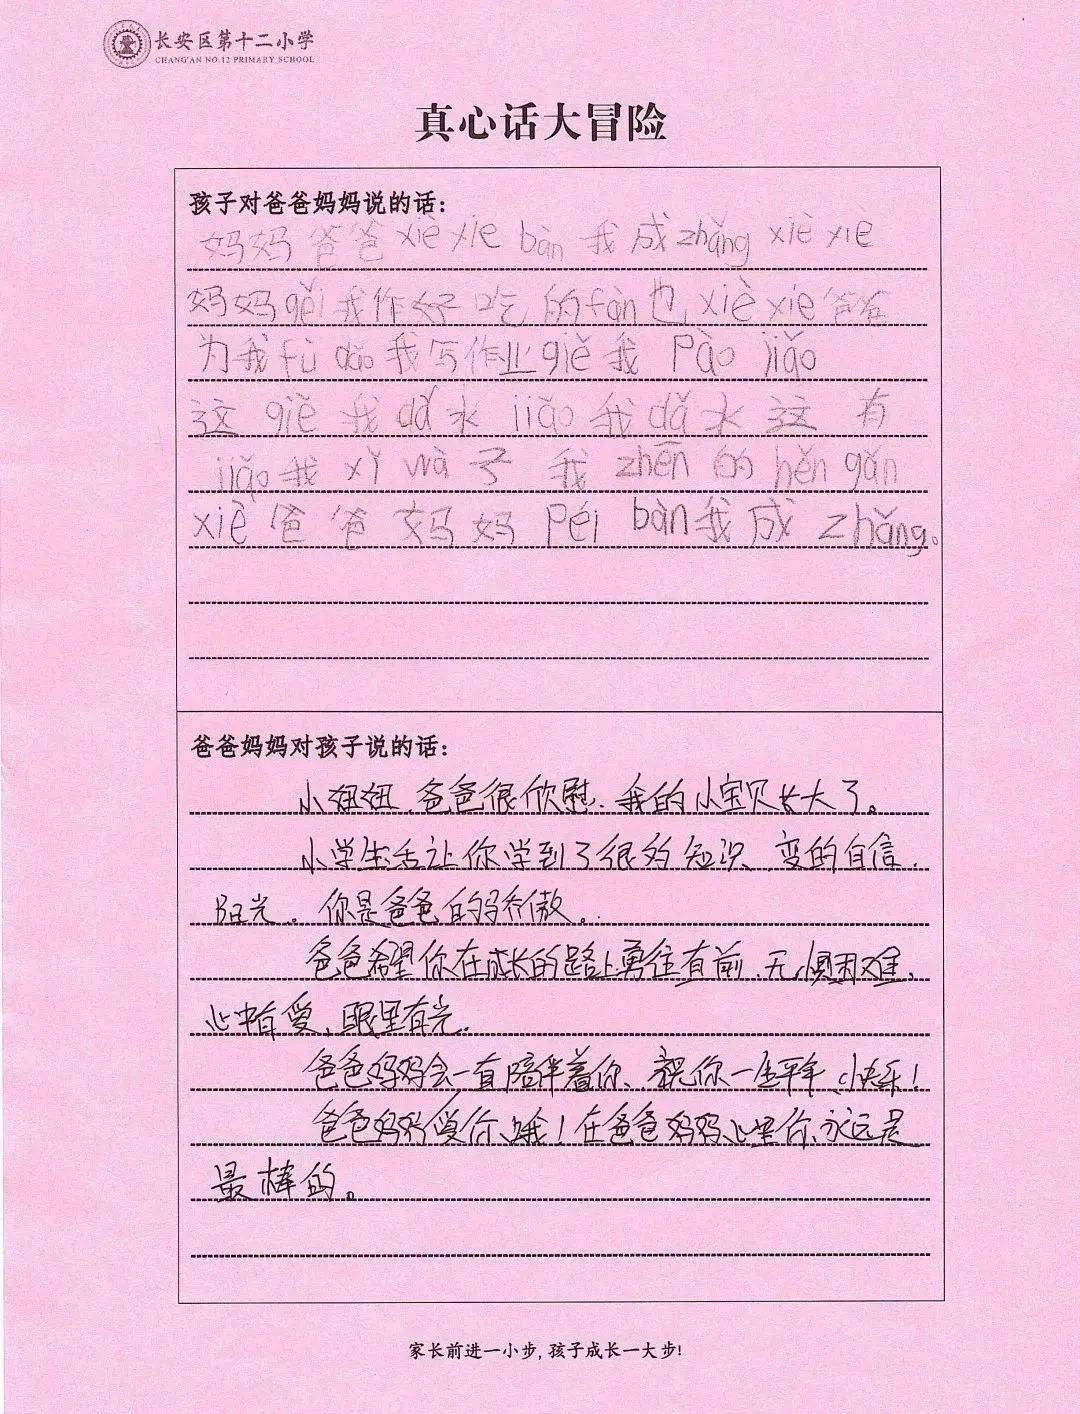 长安区第十二小学
CHANG'AN NO.12 PRIMARY SCHOOL
真心话大冒险
孩子对爸爸妈妈说的话：
妈妈爸爸xiè xie bàn我成zhǎng xiè xie
妈妈gěi我作好吃的fàn也xiè xie爸爸
为我fǔ dǎo我写作业giě我 Pǎo jiǎo
这 giě 我dǎ水 jiǎo我dǎ水 这 有
jiǎo我 xǐ wà 子 我 zhēn 的hěn gǎn
xiè 爸爸 妈妈 Péi bàn我成 zhǎng。
爸爸妈妈对孩子说的话：
小妞妞，爸爸很欣慰，我的小宝贝长大了。
小学生活让你学到了很多知识、变的自信，
阳光。你是爸爸的骄傲。
爸爸希望你在成长的路上勇往直前，无惧困难，
心中有爱，眼里有光。
爸爸妈妈会一直陪伴着你、祝你一生平安、快乐！
爸爸妈妈爱你哦！在爸爸妈妈心里你永远是
最棒的。
家长前进一小步，孩子成长一大步！